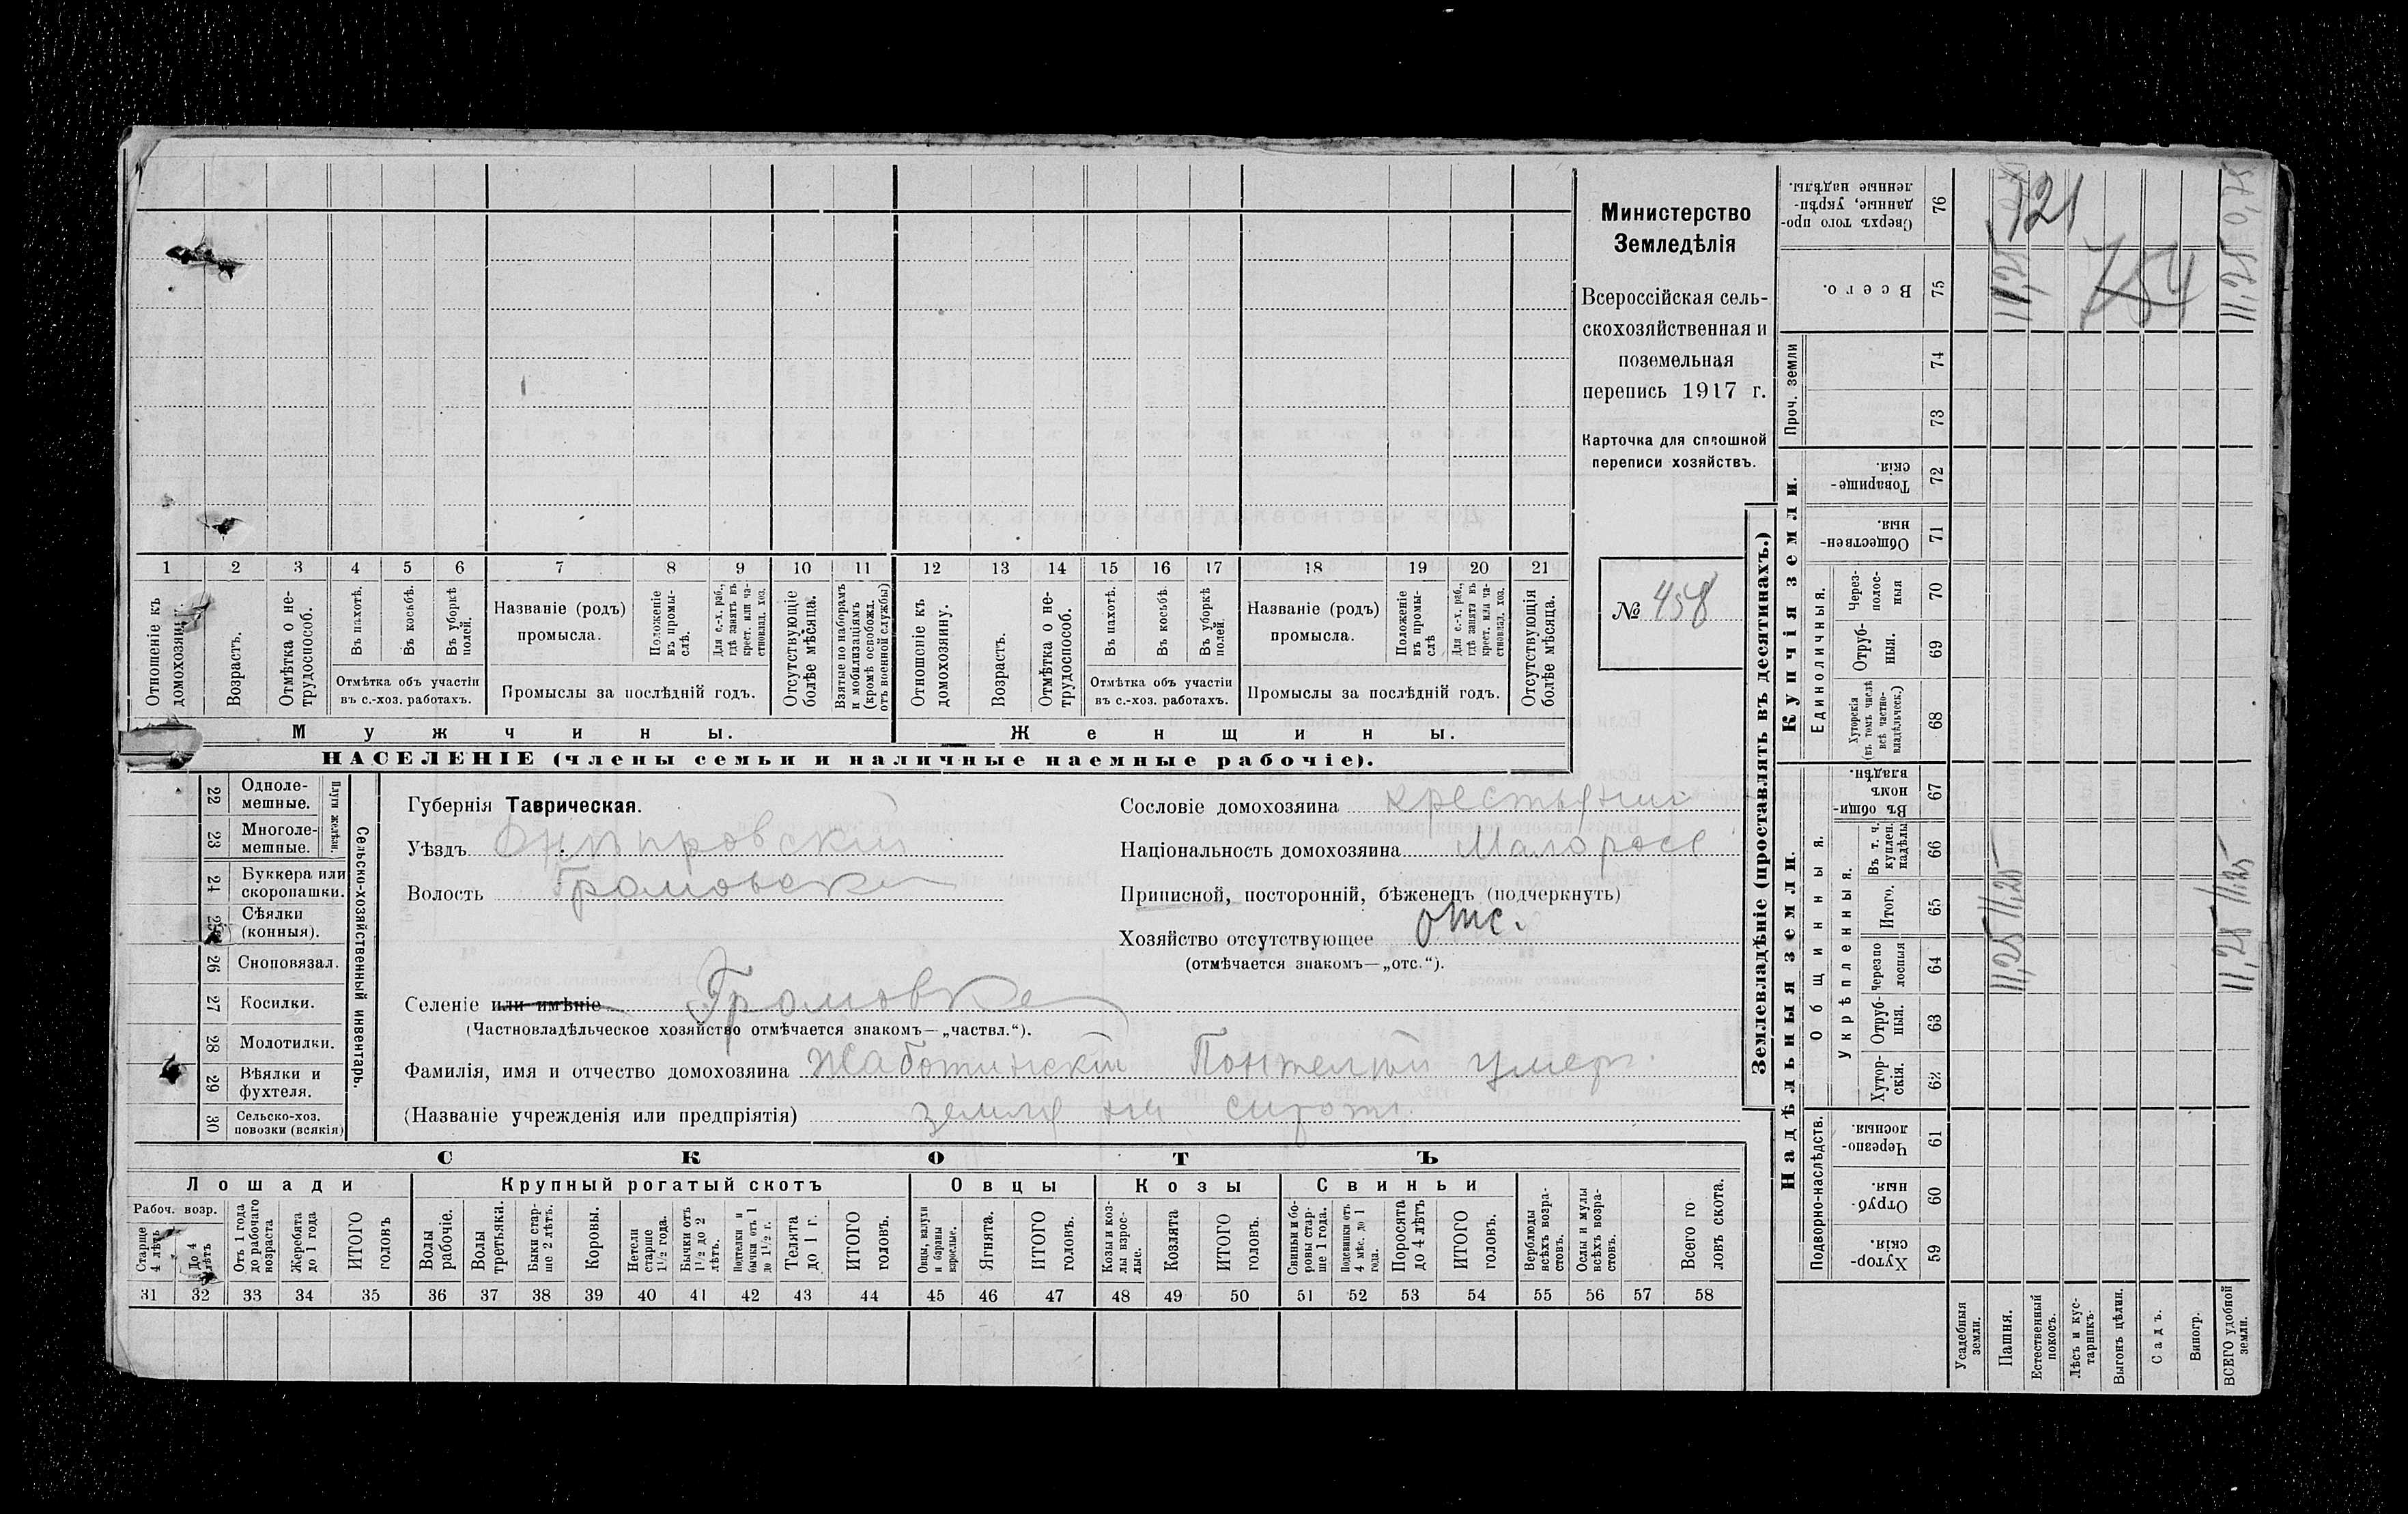 Министерство
Земледѣлія
Всероссійская сель-
скохозяйственная и
поземельная
перепись 1917 г.
Карточка для сплошной
переписи хозяйствъ.
№ 458
1 2 3 4 5 6 7 8 9 10 11 12 13 14 15 16 17 18 19 20 21
Отношеніе къ домохозяину.
Возрастъ.
Отмѣтка о не-трудоспособ.
Въ пахотѣ.
Въ косьбѣ.
Въ уборкѣ полей.
Отмѣтка объ участіи
въ с.-хоз. работахъ.
Названіе (родъ)
промысла.
Положеніе въ промы-слѣ.
Для с.-х. раб., гдѣ занятъ въ крест. или ча-стновлад. хоз.
Промыслы за послѣдній годъ.
Отсутствующіе болѣе мѣсяца.
Взятые по наборамъ и мобилизаціямъ (кромѣ освобожд. отъ военной службы)
Отношеніе къ домохозяину.
Возрастъ.
Отмѣтка о не-трудоспособ.
Въ пахотѣ.
Въ косьбѣ.
Въ уборкѣ полей.
Отмѣтка объ участіи
въ с.-хоз. работахъ.
Названіе (родъ)
промысла.
Положеніе въ промы-слѣ
Для с.-х. раб., гдѣ занята въ крест. или ча-стновлад. хоз.
Промыслы за послѣдній годъ.
Отсутствующія болѣе мѣсяца.
Мужчины.
Женщины.
НАСЕЛЕНІЕ (члены семьи и наличные наемные рабочіе).
Сельско-хозяйственный инвентарь.
Плуги желѣзн.
22 Одноле-мешные.
23 Многоле-мешные.
24 Буккера или скоропашки.
25 Сѣялки (конныя).
26 Сноповязал.
27 Косилки.
28 Молотилки.
29 Вѣялки и фухтеля.
30 Сельско-хоз. повозки (всякія)
Губернія Таврическая.
Уѣздъ Днѣпровскій
Волость Громовск
Сословіе домохозяина крестьянин
Національность домохозяина Малоросс
Приписной, посторонній, бѣженецъ (подчеркнуть)
Хозяйство отсутствующее отс.
(отмѣчается знакомъ—„отс.“).
Селеніе или имѣніе Громовка
(Частновладѣльческое хозяйство отмѣчается знакомъ—„частвл.“).
Фамилія, имя и отчество домохозяина Жаботинскій Понтелей умер.
(Названіе учрежденія или предпріятія) земля на сирот.
СКОТЪ
Лошади
Крупный рогатый скотъ
Овцы
Козы
Свиньи
Рабоч. возр.
Старше 4 лѣтъ
До 4 лѣтъ
Отъ 1 года до рабочаго возраста
Жеребята до 1 года
ИТОГО головъ
Волы рабочіе.
Волы третьяки.
Быки стар-ше 2 лѣтъ.
Коровы.
Нетели старше 1½ года.
Бычки отъ 1½ до 2 лѣтъ.
Подтелки и бычки отъ 1 до 1½ г.
Телята до 1 г.
ИТОГО головъ.
Овцы, валухи и бараны взрослые.
Ягнята.
ИТОГО головъ.
Козы и коз-лы взрос-лые.
Козлята
ИТОГО головъ.
Свиньи и бо-ровы стар-ше 1 года.
Подсвинки отъ 4 мѣс. до 1 года.
Поросята до 4 лѣтъ
ИТОГО головъ.
Верблюды всѣхъ возра-стовъ.
Ослы и мулы всѣхъ возра-стовъ.
Всего го ловъ скота.
31 32 33 34 35 36 37 38 39 40 41 42 43 44 45 46 47 48 49 50 51 52 53 54 55 56 57 58
Землевладѣніе (проставлять въ десятинахъ.)
Надѣльныя земли.
Купчія земли.
Проч. земли
Подворно-наслѣдств.
Общинныя.
Укрѣпленныя.
Единоличныя.
Сверхъ того про-данные, укрѣп-ленные надѣлы. 76
Всего. 75
74
73
Товарище-скія. 72
Обществен-ныя. 71
Через-полос-ныя 70
Отруб-ныя. 69
Хуторскія (въ томъ числѣ всѣ частно-владѣльческ.) 68
Въ общи-номъ владѣн. 67
Въ т. ч. куплен. надѣлы 66
Итого. 65
Черезпо лосныя 64
Отруб-ныя. 63
Хутор-скія. 62
Черезпо-лосныя. 61
Отруб-ныя. 60
Хутор-скія. 59
Усадебныя земли.
Пашня. 11,25 11,25 11,25
Естественный покосъ.
Лѣсъ и кус-тарникъ.
Выгонъ цѣлин.
Садъ.
Виногр.
ВСЕГО удобной земли. 11,25 11,25 11,25 0,75
121
754